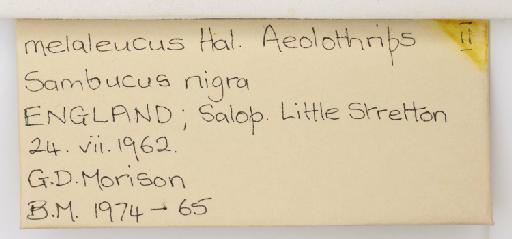 melaleucus Hal. Aeolothrips II
Sambucus nigra
ENGLAND; Salop. Little Stretton
24. vii. 1962.
G.D. Morison
B.M. 1974 - 65